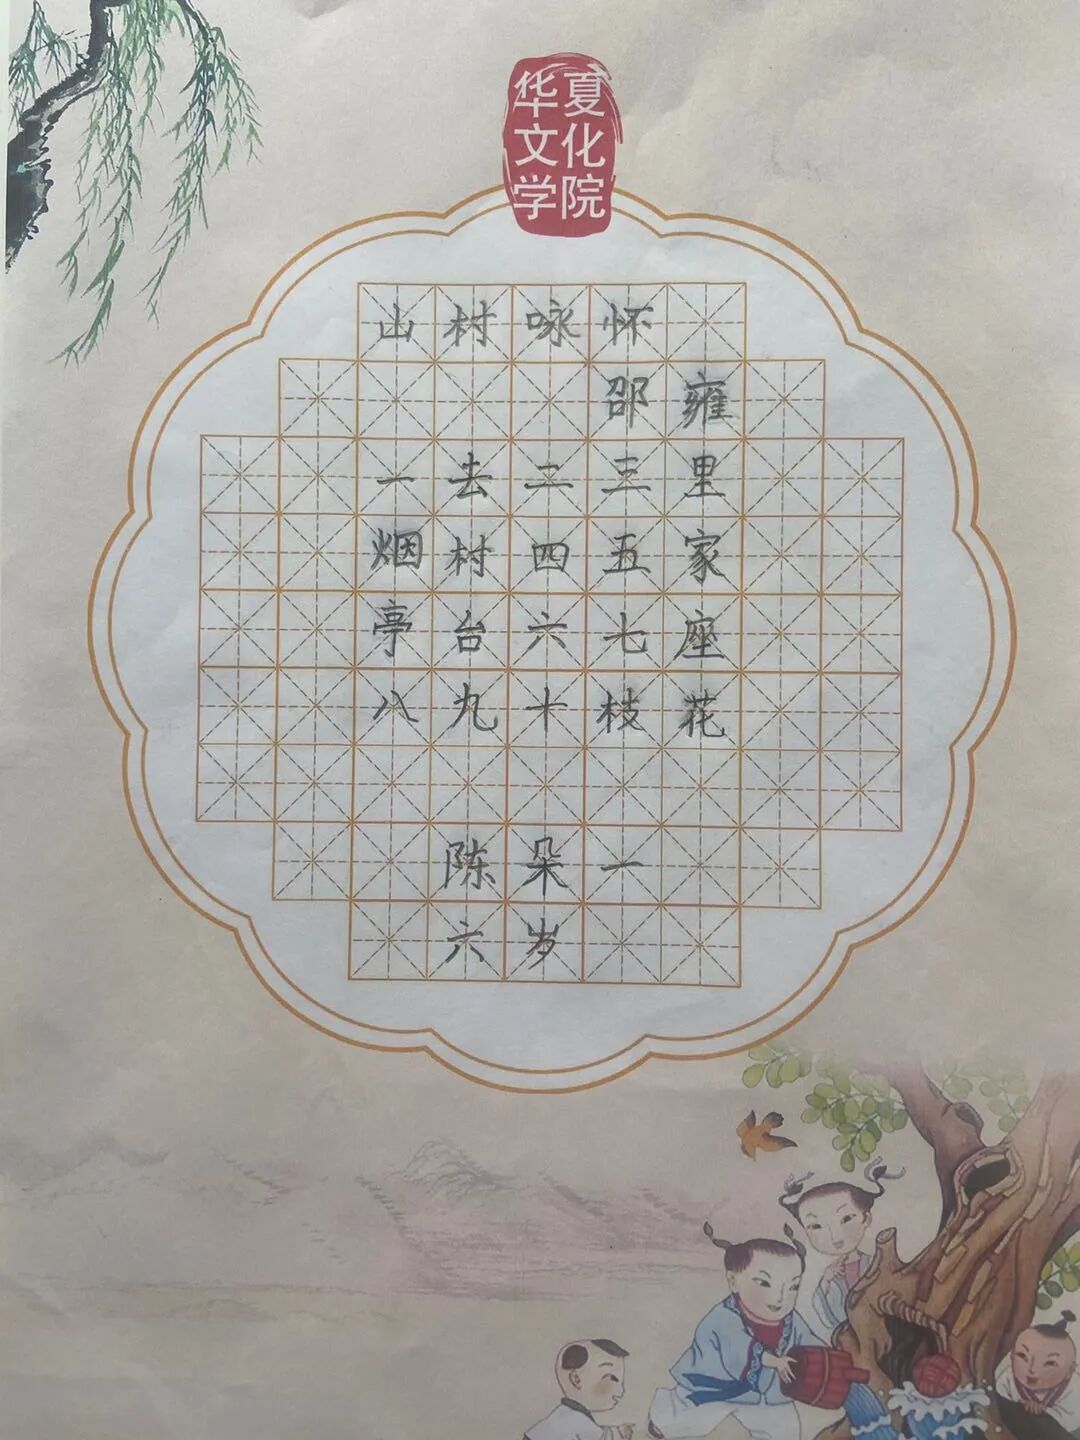 华夏
文化
学院
山村咏怀
邵雍
一去二三里
烟村四五家
亭台六七座
八九十枝花
陈朵一
六岁